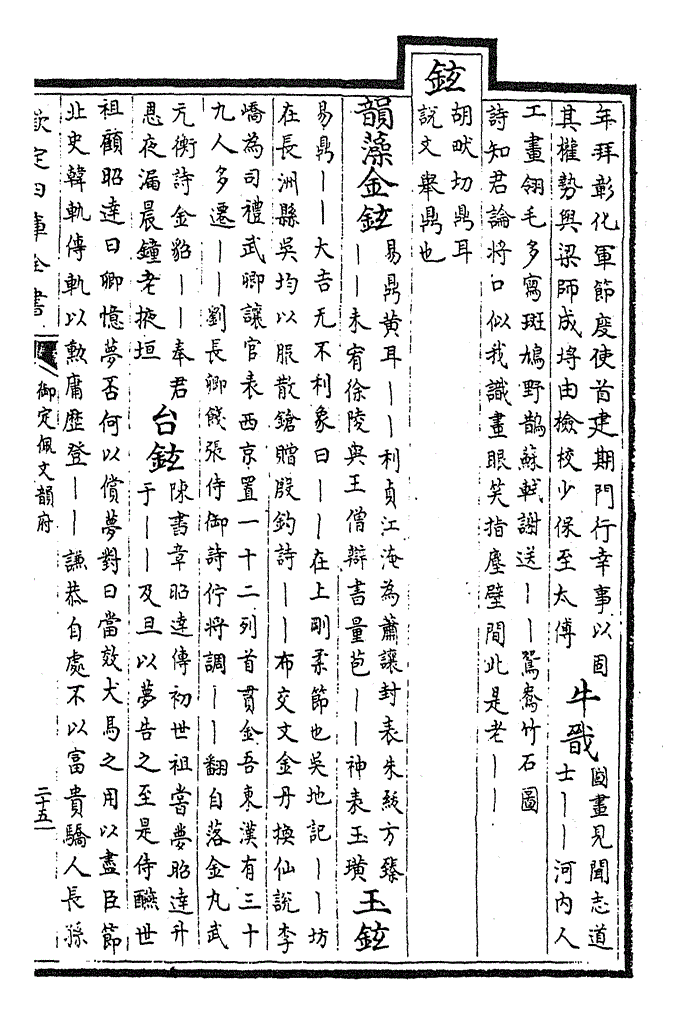 年拜彰化軍節度使首建期門行幸事以固
其權勢與梁師成埒由檢校少保至太傅
牛戩
圖畫見聞志道
士丨丨河内人
工畫翎毛多寫斑鳩野鵲蘇軾謝送丨丨鴛鴦竹石圖
詩知君論將口似我識畫眼笑指塵壁間此是老丨丨
鉉
胡畎切鼎耳
說文舉鼎也
韻藻金鉉
易鼎黄耳丨丨利貞江淹為蕭讓封表朱紱方臻
丨丨未宥徐陵與王僧辯書量苞丨丨神表玉璜
玉鉉
易鼎丨丨大吉无不利象曰丨丨在上剛柔節也吳地記丨丨坊
在長洲縣吳均以服散鎗贈殷鈞詩丨丨布交文金丹換仙說李
嶠為司禮武卿讓官表西京置一十二列首貫金吾東漢有三十
九人多遷丨丨劉長卿餞張侍御詩佇將調丨丨翻自落金丸武
元衡詩金貂丨丨奉君
恩夜漏晨鐘老掖垣
台鉉
陳書章昭達傳初世祖嘗夢昭達升
于丨丨及旦以夢告之至是侍醼世
祖顧昭達曰卿憶夢否何以償夢對曰當效犬馬之用以盡臣節
北史韓軌傳軌以勲庸歷登丨丨謙恭自處不以富貴驕人長孫
欽定四庫全書
御定佩文韻府
二十五